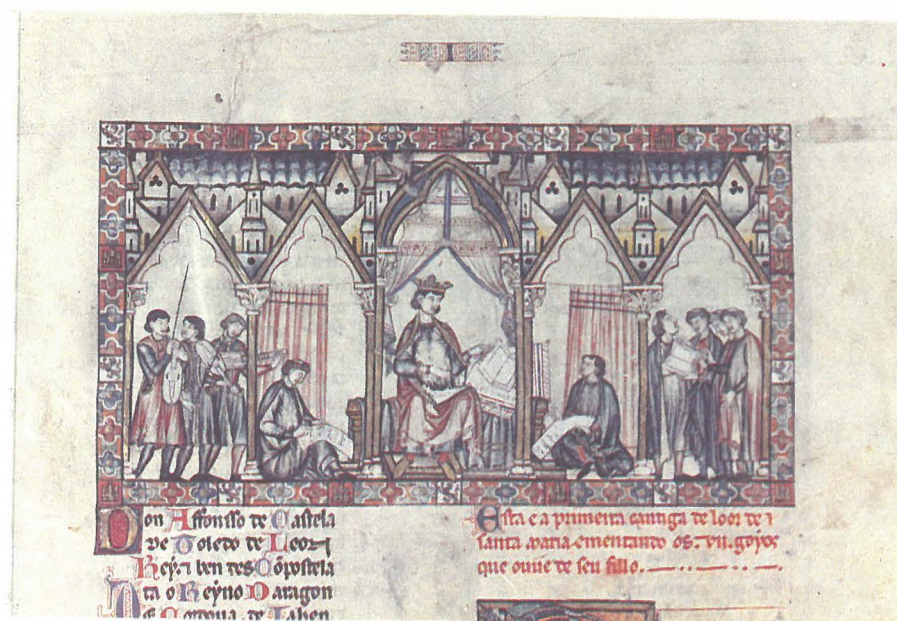 Don Affonsso de Castela
de Toledo de Leon ⁊
Rey ⁊ ben des Cõpostela
ta o Reyno Daragon
Esta e a primeira cantiga de loor de
santa maria ementando os .vii. goyos
que ouue de seu fillo.